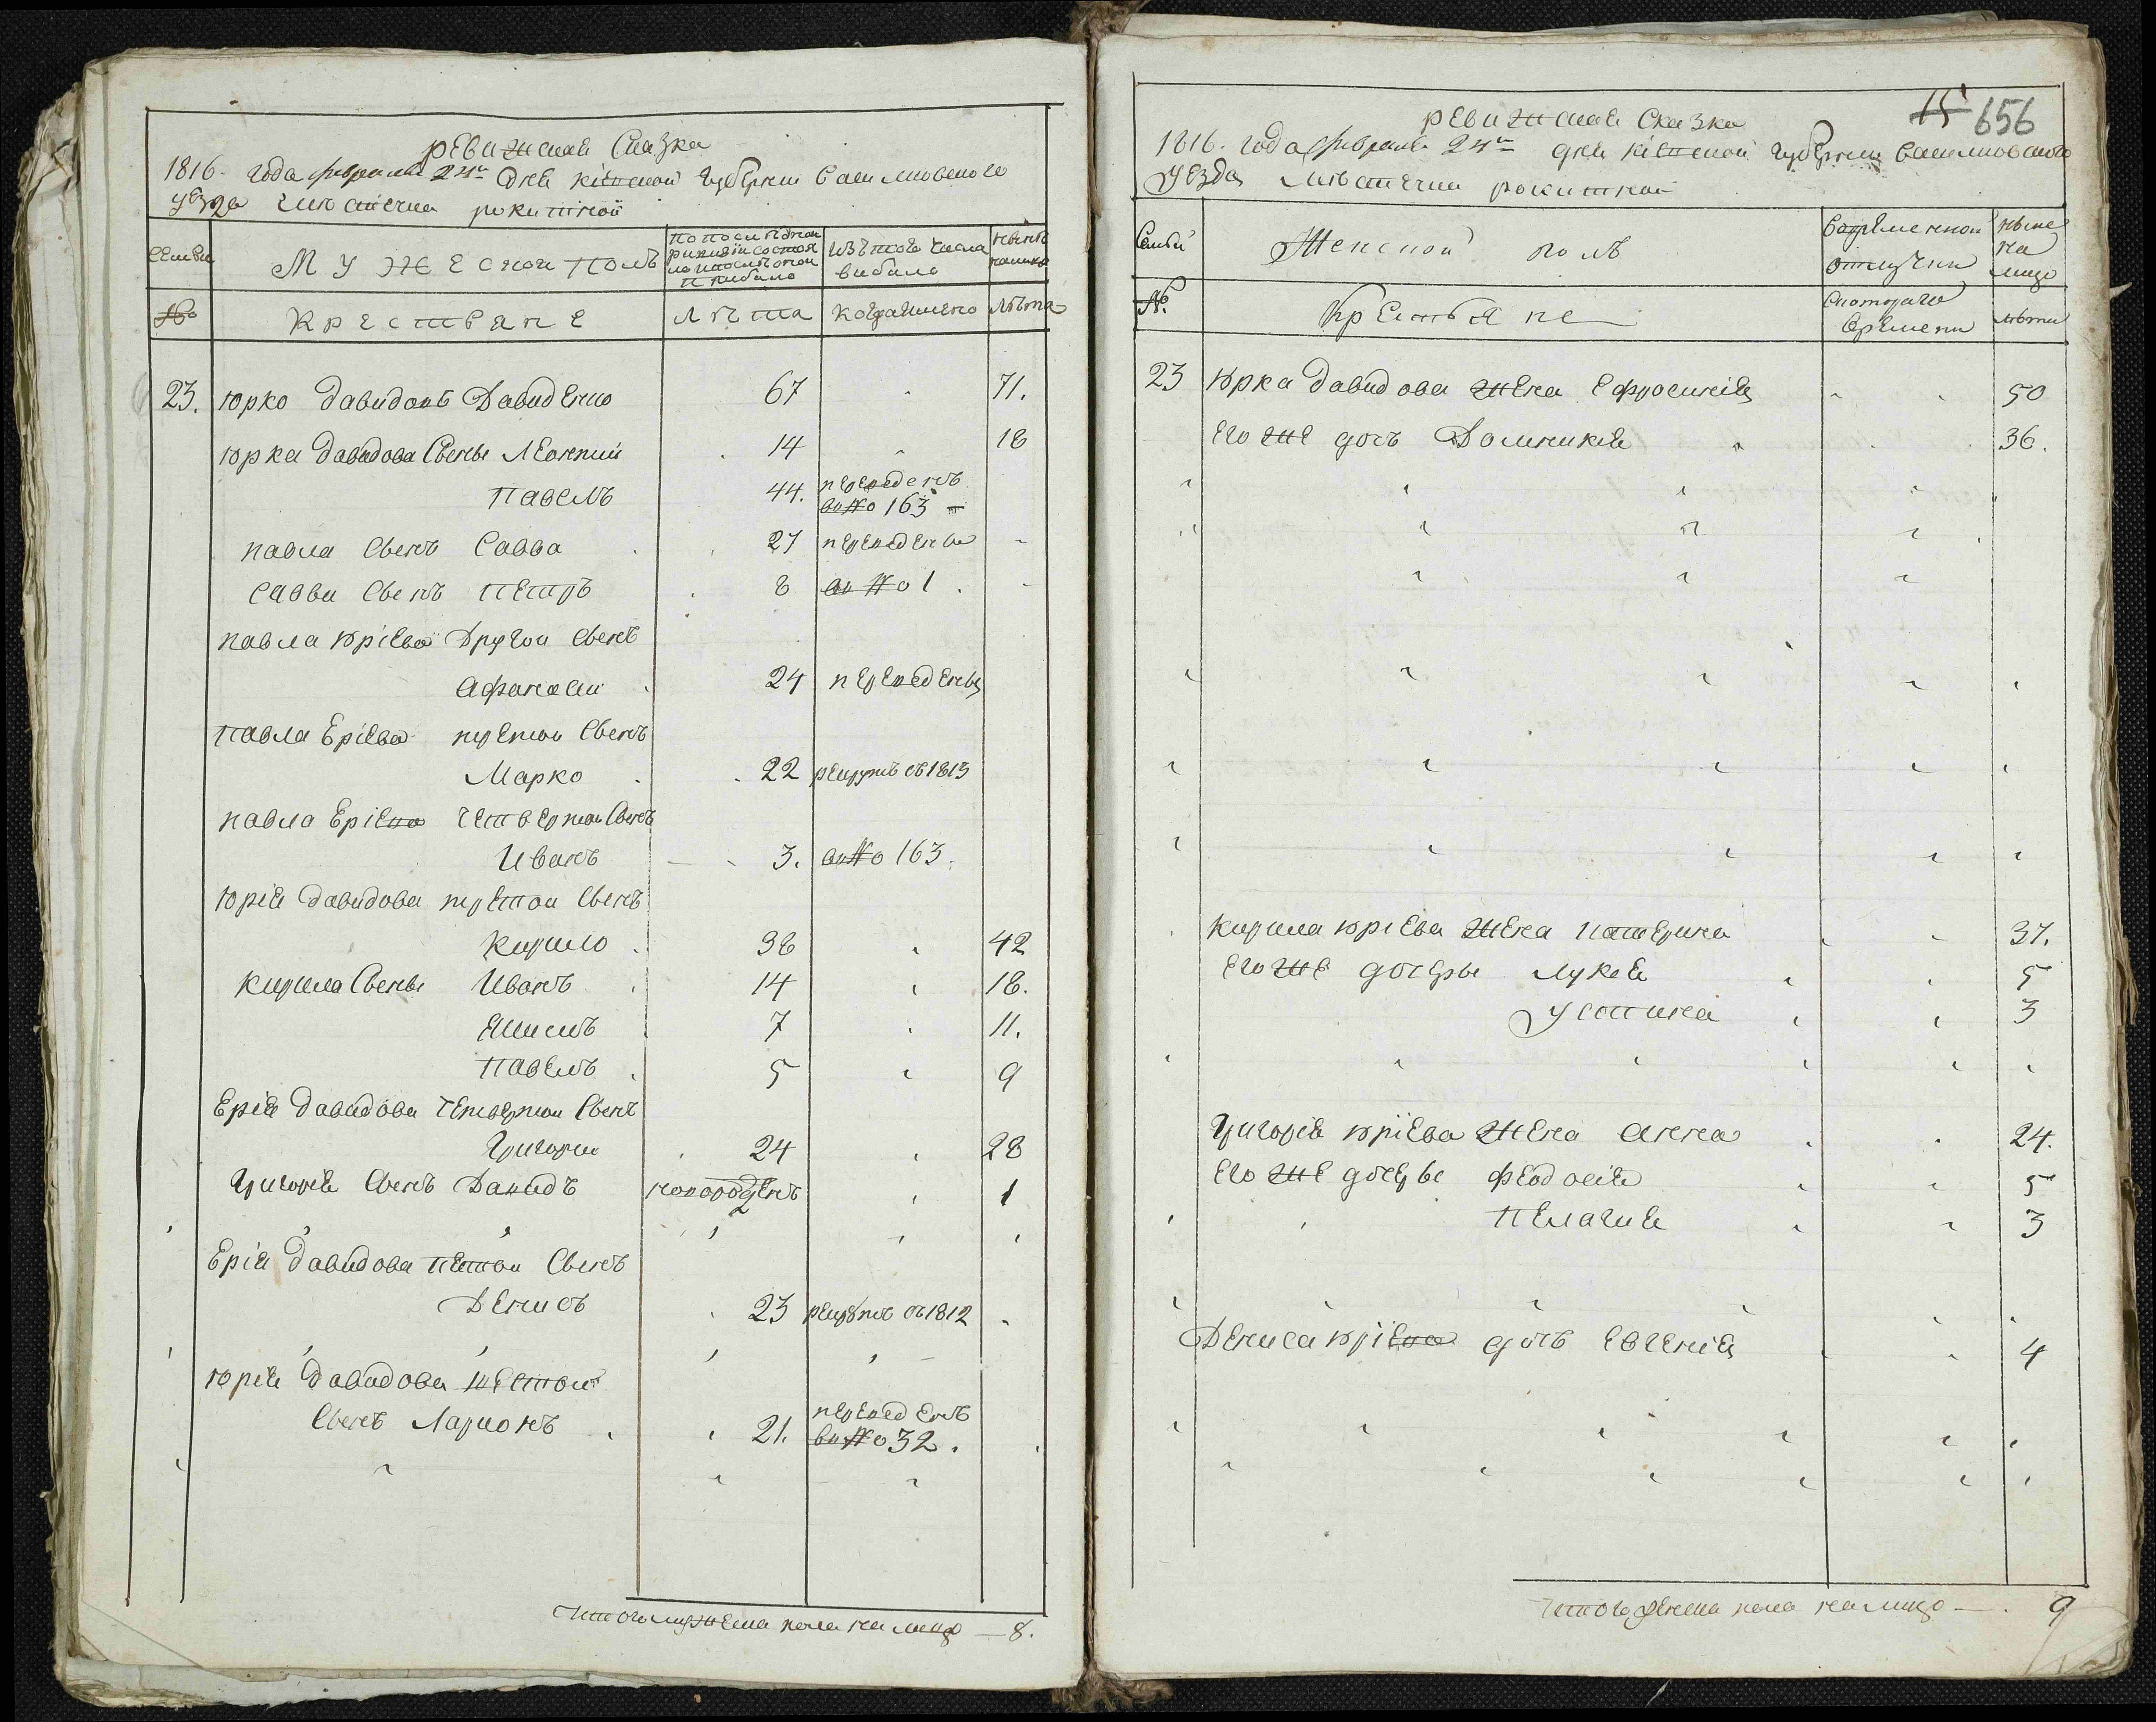 ревизская Сказка
1816. года февраля 24 дня кіевской губернии василковского
уезда местечка рокитной
Семьи
Мужескои полъ
по последнои ревизіи состояло и после оной прибыло
изъ того числа выбыло
ныне налицо
№
Крестьяне
лѣта
когда имено
лѣта
23. юрко давидовъ Давиденко 67 71.
юрка давидова Сыны Леонтий 14 18
павелъ 44. переведенъ
в №о 163
павла Сынъ Савва 27 переведены
Савви Сынъ петръ 8 в №о 1.
павла юріева другои Сынъ
афанасий 24 переведены
павла Еріева третои Сынъ
Марко 22 рекрутъ въ 1813
павла Еріева четвертои Сынъ
Иванъ 3. в №о 163.
юрія давидова третои Сынъ
кирило 38 42
кирила Сыны Иванъ 14 18.
7 11.
павелъ 5 9
Ерія давидова Четвертои Сынъ
Григорий 24 28
Григорія Сынъ Давидъ новорожденъ 1
Ерія давидова пятои Сынъ
Денисъ 23 рекрутъ въ 1812
юрія давидова шестои
Сынъ Ларионъ 21. переведенъ
в №о 32.
Итого мужеска пола на лицо — 8.
15 656
ревизская Сказка
1816. года февраля 24 дня кіевской губернии василковского
уезда местечка рокитной
Семьи
Женской полъ
Во временной отлучки
ныне на лицо
№.
Крестьяне
С которого времени
лѣта
23 юрка давидова жена Ефросинія 50
его же дочъ Домникия 36.
кирила юріева жена катерина 37.
его же дочеры лукея 5
устина 3
Григорія юріева жена анна 24.
его же дочеры феодосія 5
пелагия 3
Дениса юріева дочъ Евгения 4
Итого женска пола на лицо — 9